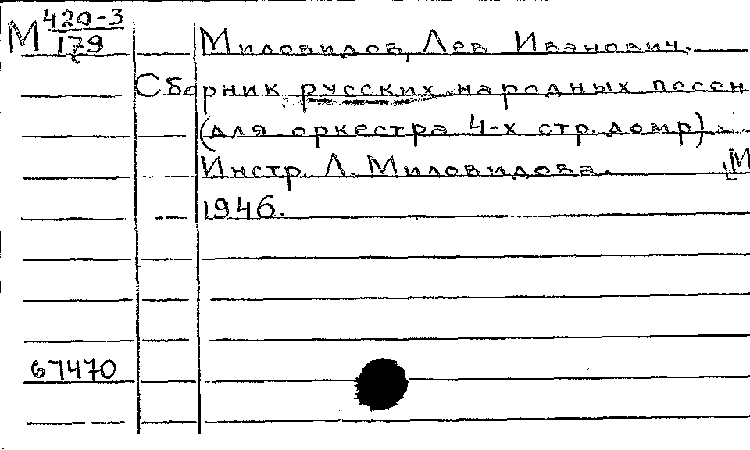 М 420-3
179
Миловидов, Лев Иванович.
Сборник русских народных песен
(для оркестра 4-х стр. домр).
Инстр. Л. Миловидова. М
1946.
67470